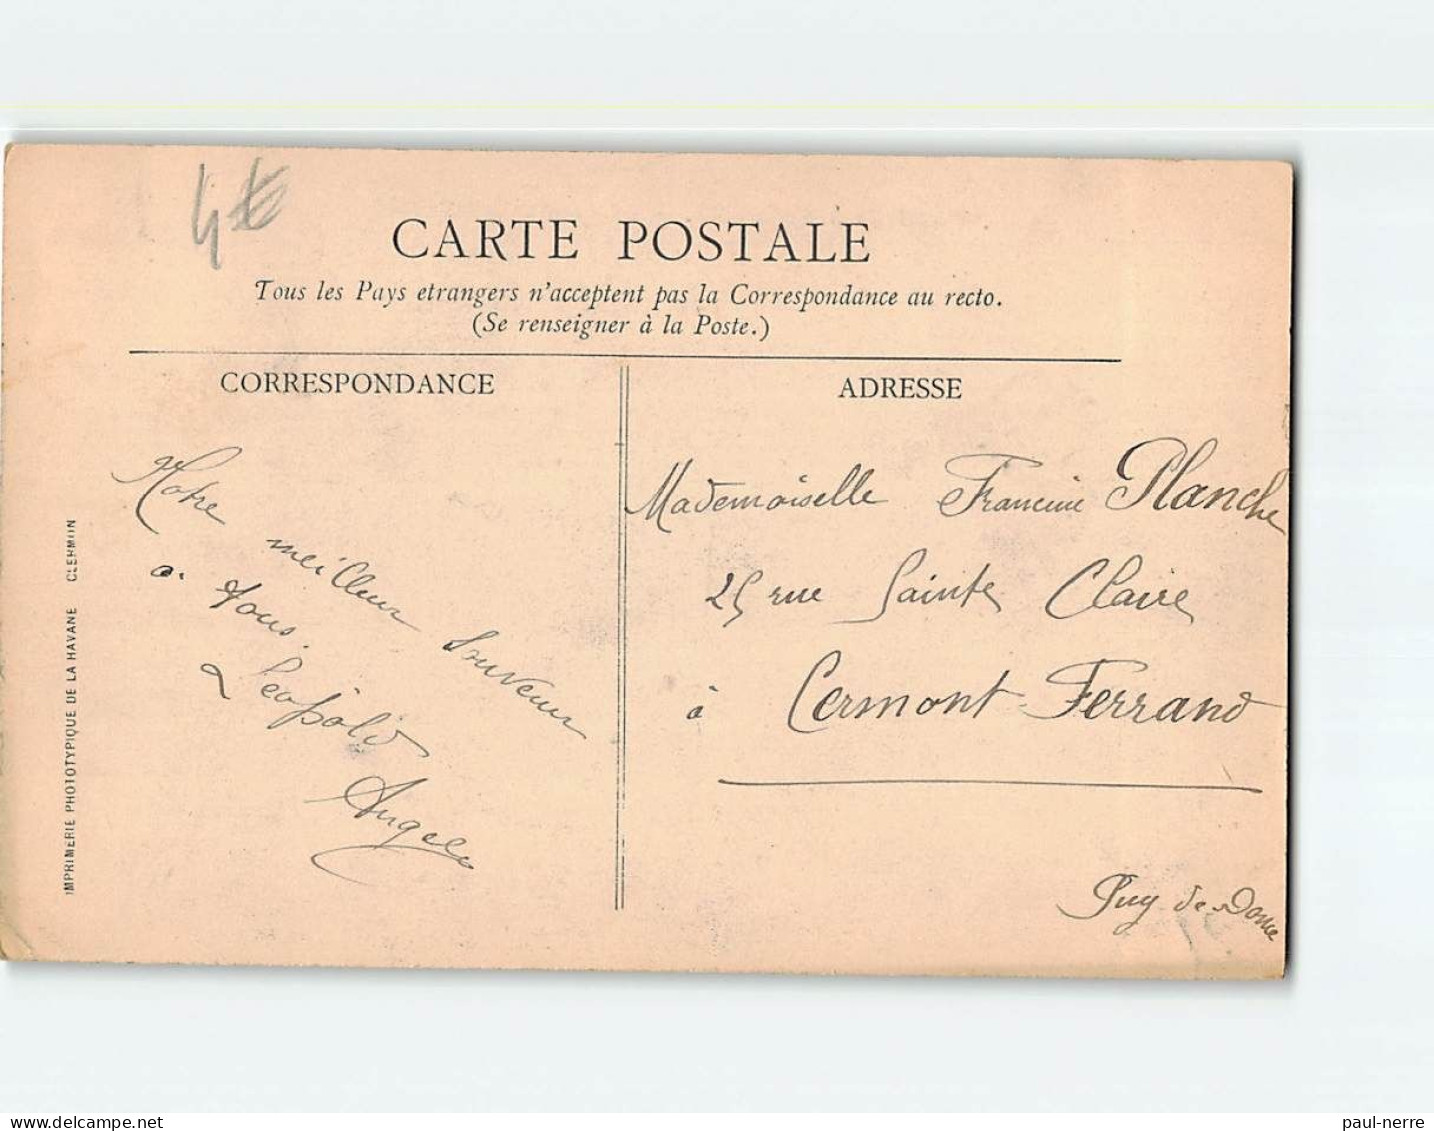 4€
CARTE POSTALE
Tous les Pays etrangers n'acceptent pas la Correspondance au recto.
(Se renseigner à la Poste.)
CORRESPONDANCE
ADRESSE
Notre meilleur Souvenir
à tous.
Léopold
Angele
Mademoiselle Francine Planche
25 rue Sainte Claire
à Cermont-Ferrand
Puy de Dome
IMPRIMERIE PHOTOTYPIQUE DE LA HAVANE CLERMON
paul-nerre
delcampe.net